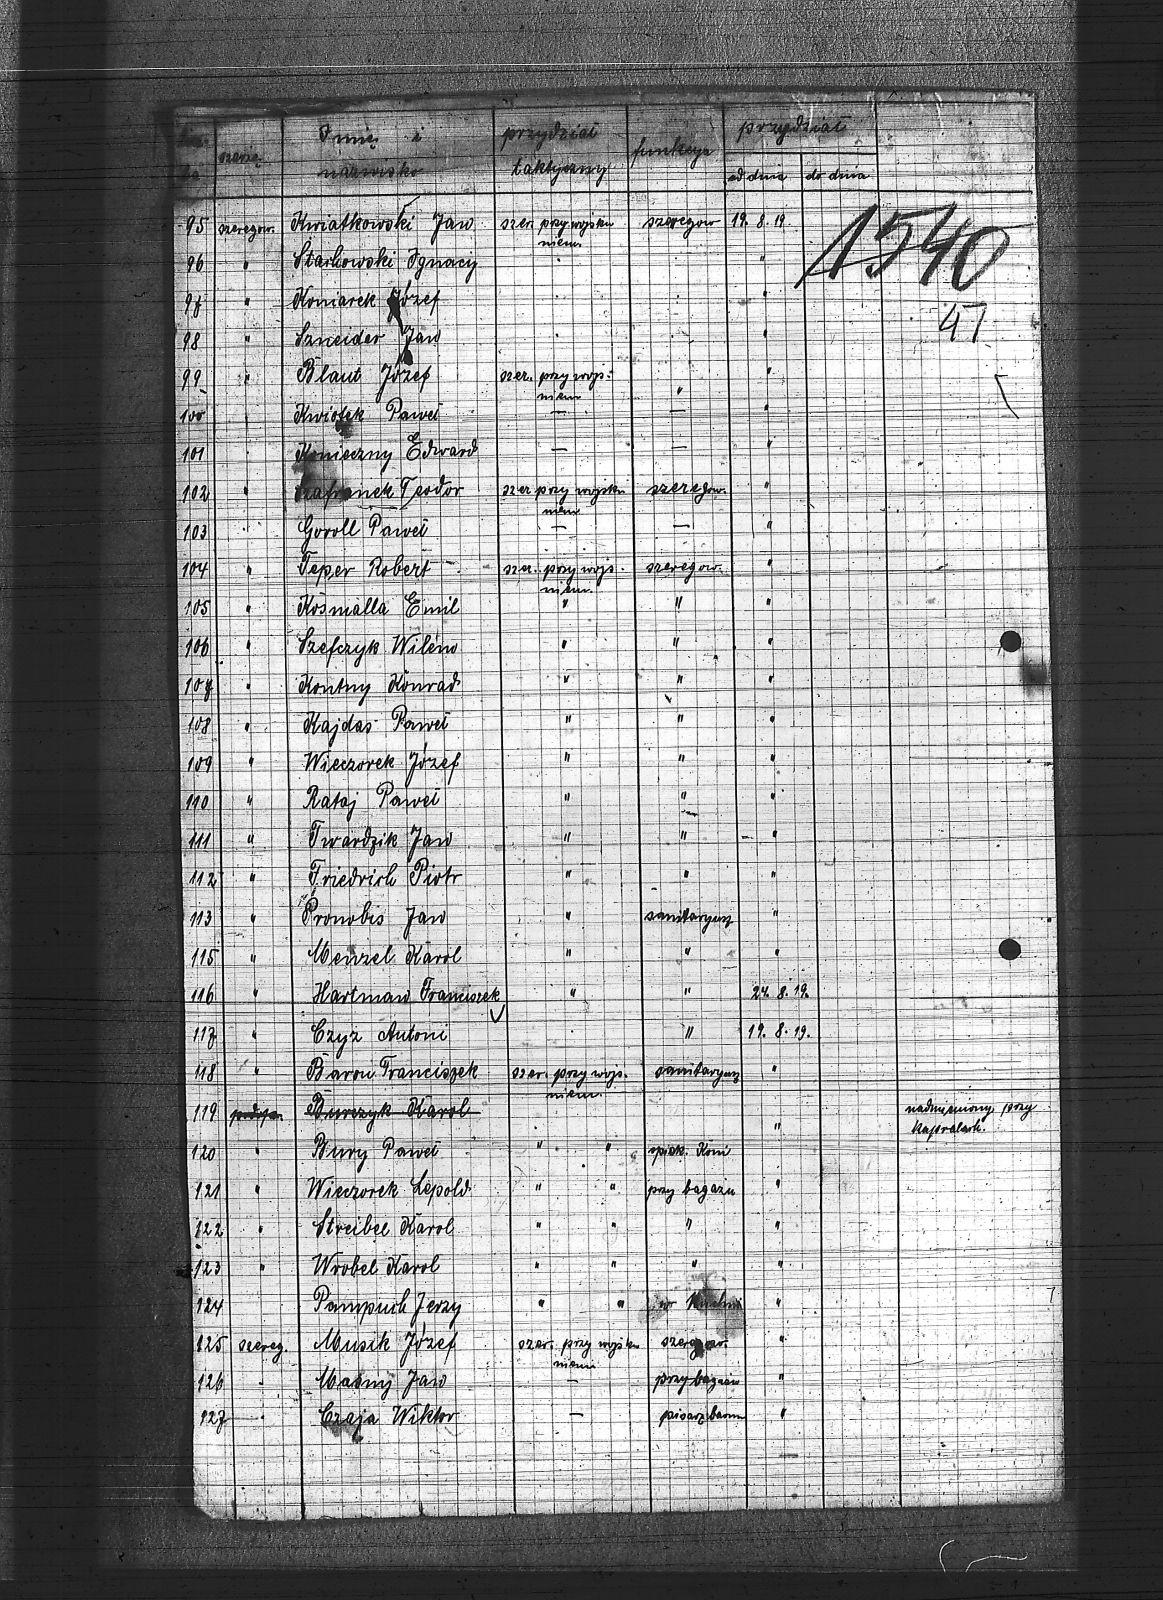 szarża Imię i przydział funkcja przydział
nazwisko taktyczny od dnia do dnia
95 szeregow. Kwiatkowski Jan szer. przy wojsku szeregow 19.8.19.
niem. 1540
96 " Starkowski Ignacy "
97 " Koniarek Józef "
47
98 " Szneider Jan "
99 " Blaut Józef szer. przy wojs. " "
niem
100 Kwiotek Paweł — — "
101 Konieczny Edward — — "
102 " Szafranek Teodor szer przy wojsku szeregow. "
niem
103 Goroll Paweł — — "
104 " Teper Robert szer. przy wojs. szeregow. "
niem.
105 " Kosmalla Emil " " "
106 " Szefczyk " " "
107 " Kontny Konrad " " "
108 " Kajdas Paweł " " "
109 " Wieczorek Józef " " "
110 " Rataj Paweł " " "
111 " Twardzik Jan " " "
112 " Friedrich Piotr " " "
113 " Pronobis Jan " sanitaryusz "
115 " Menzel Karol " " "
116 " Hartman Franciszek " " 24.8.19.
117 " Czyż Antoni " 19.8.19.
118 " Baron Franciszek szer. przy wojs. sanitaryusz "
niem.
119 Burczyk Karol nadmieniony przy
" kapralach.
120 " Bury Paweł " " opiek. Koni
121 " Wieczorek Lepold " " przy bagażu "
122 " Streibel Karol " " " "
123 " Wrobel Karol " " " "
124 Pampuch Jerzy " " w kuchni "
125 szereg. Musik Józef szer. przy wojsku szeregow. "
niem
126 Masny Jan — przy bagażu "
127 Czaja Wiktor — pisarz baonu "